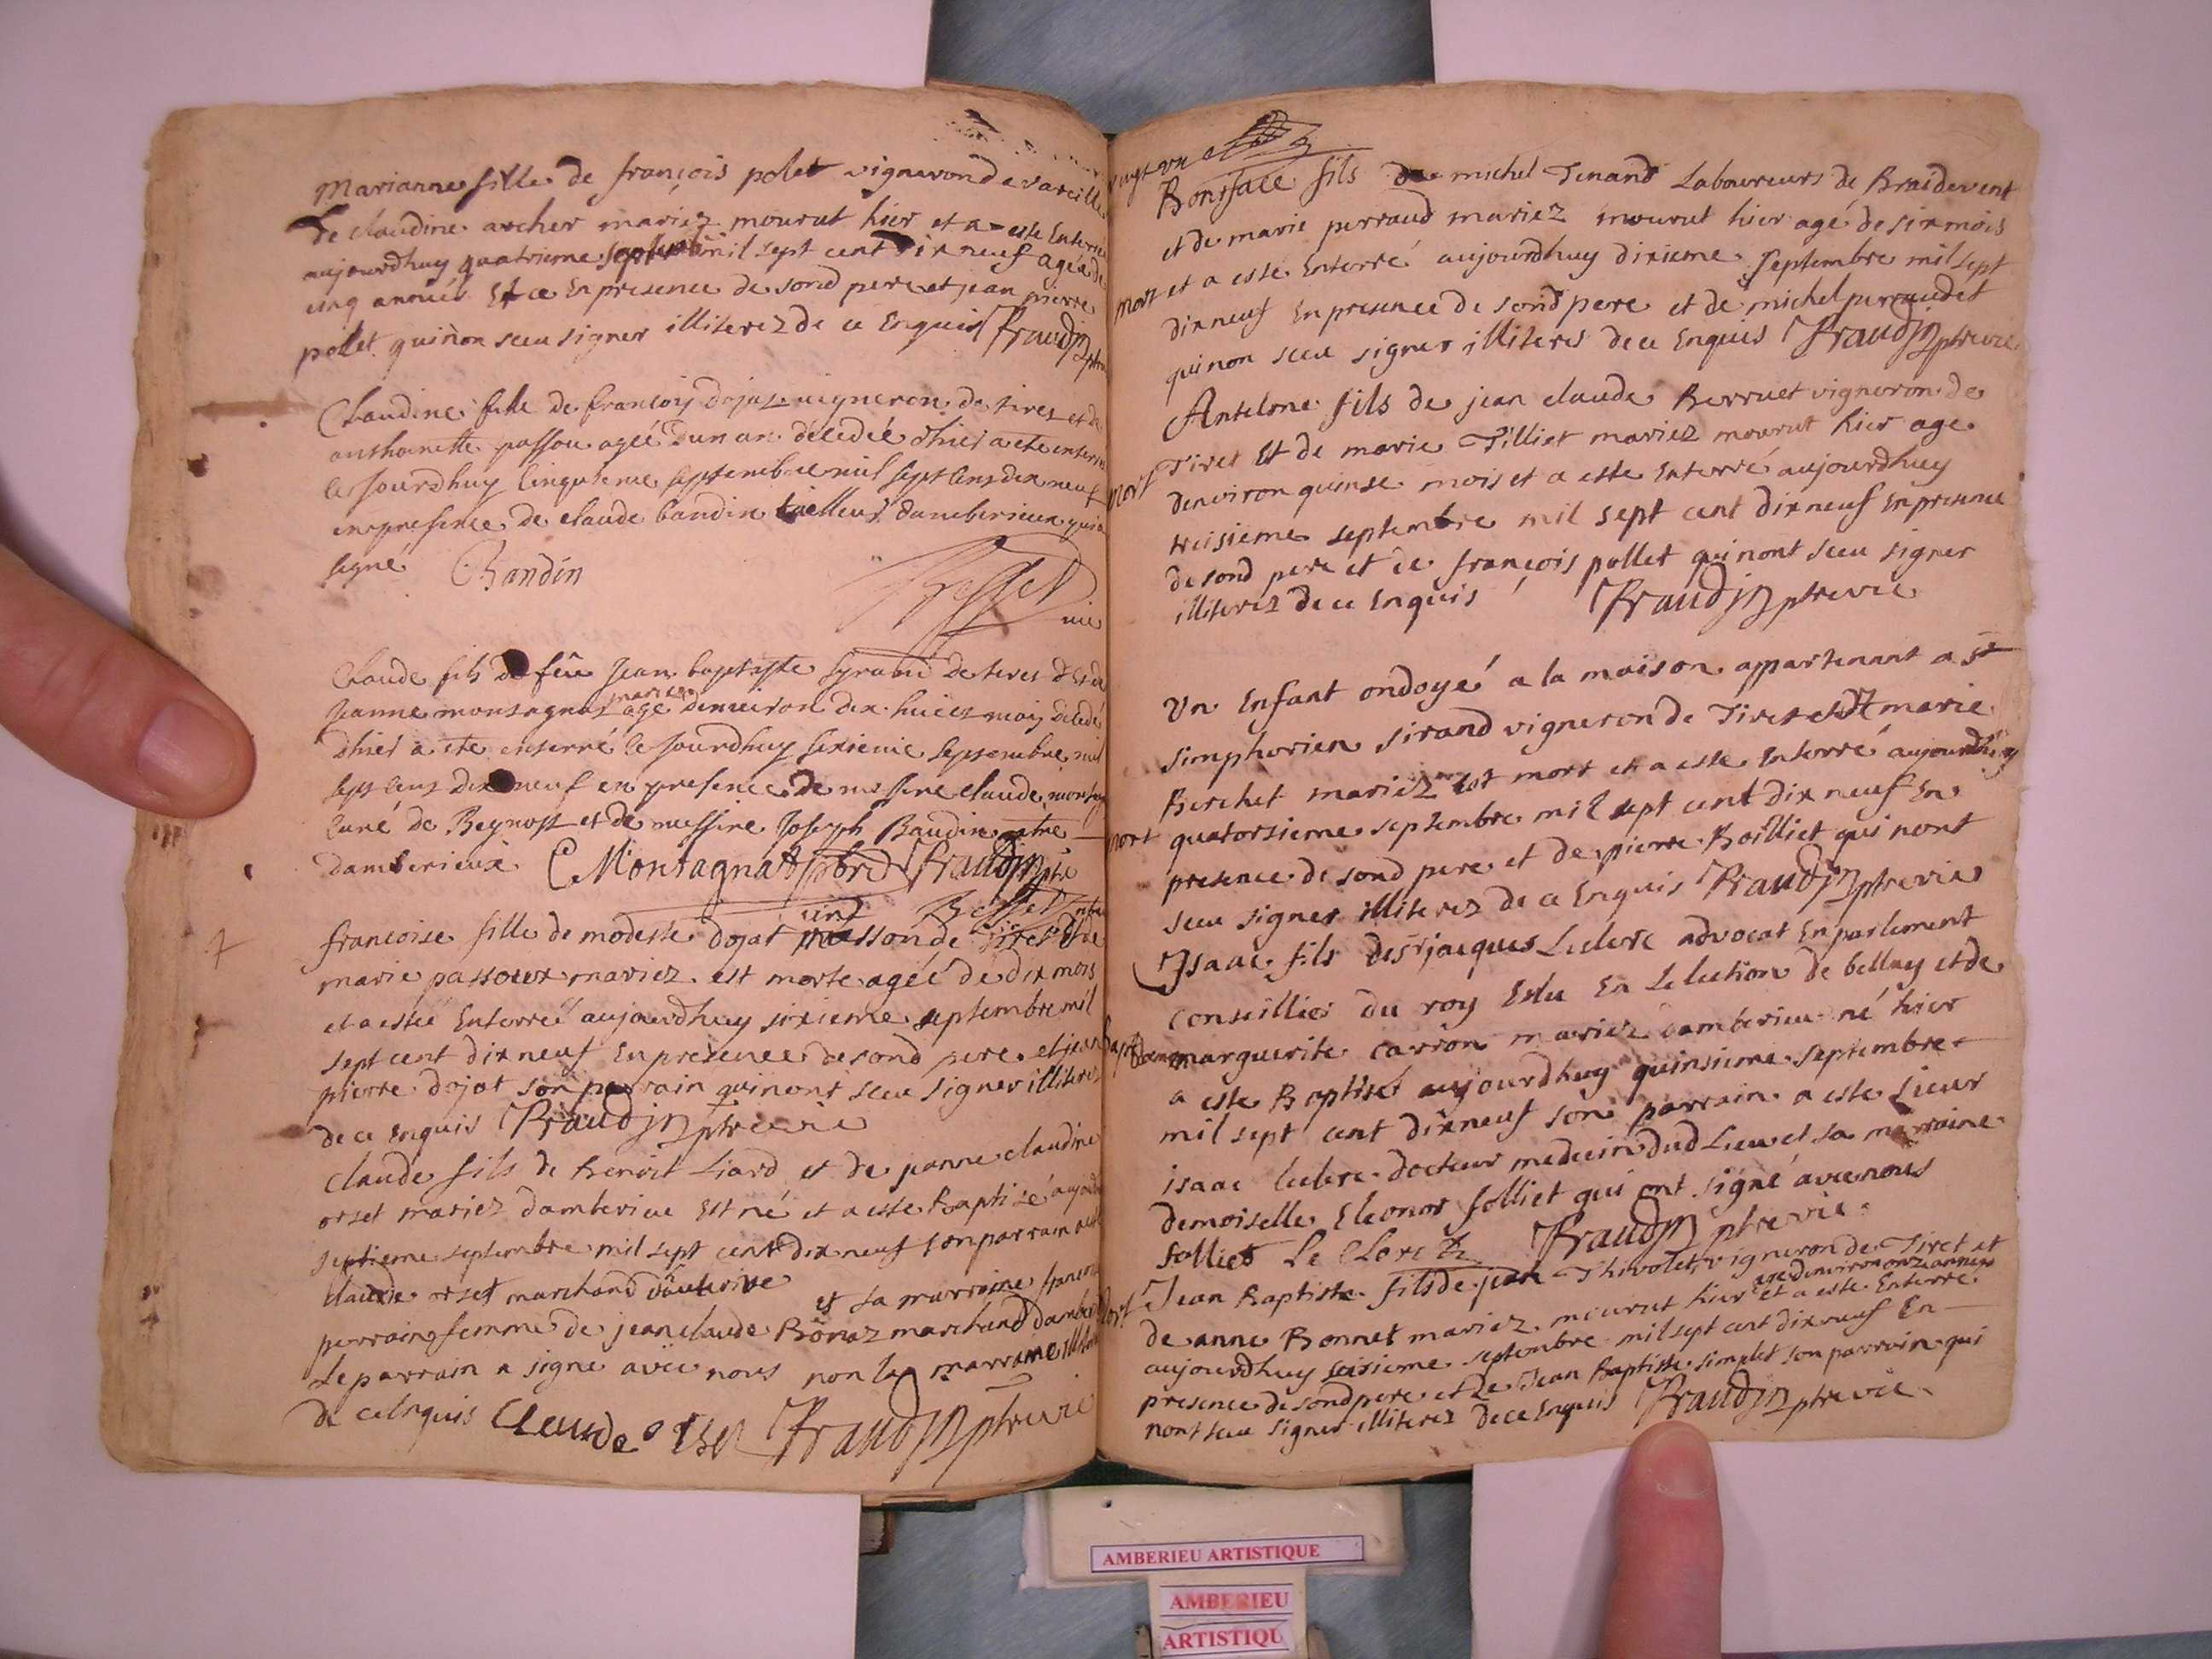 Marianne fille de françois polet vigneron de vareilles
de claudine archer mariez mourut hier et a este Enterrée
aujourdhuy quatrieme septembre mil sept cent dix neuf agée de
cinq années Et ce En presence de sond pere et jean pierre
polet qui non sceu signer illiterez de ce Enquis Braudin ptre
Claudine fille de françois dojat vigneron de tires et de
anthoinette passou agée dun an décédée dhier a ete enterrée
ce jourdhuy cinquieme septembre mil sept cens dix neuf
en presence de claude baudin tailleur damberieux qui a
signé Baudin
Besset
vic
Claude fils de feu jean baptiste syraud de tires Et de
jeanne montagnat mariez agé denviron dix huict mois décédé
dhier a ete enterré ce jourdhuy sixieme septembre mil
sept cens dix neuf en presence de messire claude montag
curé de Beynost et de messire Joseph Baudin ptre
damberieux C Montagnat pbre Braudin ptre
Besset
francoise fille de modeste dojat masson de Tires Et de
marie passoux mariez est morte agée de dix mois
et a estée Enterrée aujourdhuy sixieme septembre mil
sept cent dix neuf En presence de sond pere et jean
pierre dojat son parrain qui nont sceu signer illiterez
de ce Enquis Braudin ptre vic
Claude fils de Benoit Liard et de jeanne claudine
orset mariez damberieu Est né et a este Baptisé aujourd
septieme septembre mil sept cent dix neuf son parrain a est
claude orset marchand dauterive et sa marraine francoi
perraing femme de jean claude Bonaz marchand dambe
Le parrain a signe avec nous non la marraine illitere
de ce Enquis Claude orset Braudin ptre vic
Boniface fils de michel Tenand Laboureurs de Brasdevent
et de marie perraud mariez mourut hier agé de six mois
mort et a esté Enterré aujourdhuy dixieme septembre mil sept
dix neuf En presence de sond pere et de michel perraudet
qui non sceu signer illiteres de ce Enquis Braudin ptre vic
Antelme fils de jean claude Berruet vigneron de
Tires Et de marie Tilliet mariez mourut hier age
mort denviron quinse mois et a este Enterré aujourdhuy
treisieme septembre mil sept cent dix neuf En presence
de sond pere et de françois pollet qui nont sceu signer
illiterez de ce Enquis Braudin ptre vic
Un Enfant ondoyé a la maison appartenant a St
simphorien sirand vigneron de Tires et marie
Berchet mariez est mort et a este Enterré aujourdhuy
mort quatorsieme septembre mil sept cent dix neuf En
presence de sond pere et de pierre Boilliet qui nont
sceu signer illiterez de ce Enquis Braudin ptre vic
Isaac fils de sr jacques Leclerc advocat En parlement
conseillier du roy Eslu En Lelection de bellay et de
marguerite carron mariez damberieu né hier
a este Baptisé aujourdhuy quinsieme septembre
mil sept cent dix neuf son parrain a este sieur
isaac leclerc docteur medecin dud Lieu et sa marraine
demoiselle Eleonor solliet qui ont signé avec nous
solliet Le Clerc Braudin ptre vic
Jean Baptiste fils de jean Thivolet vigneron de Tiret et
mort de anne Bonnet mariez mourut hier age denviron onze annees et a este Enterre
aujourdhuy seisieme septembre mil sept cent dix neuf En
presence de sond pere et de Jean Baptiste simplet son parrain qui
nont sceu signer illiterez de ce Enquis Braudin ptre vic
AMBERIEU ARTISTIQUE
AMBERIEU
ARTISTIQU